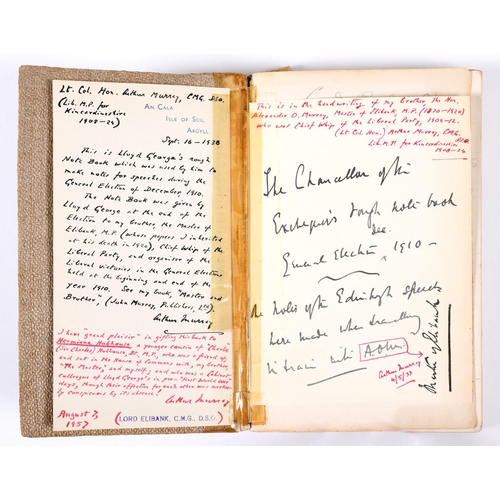 Lt. Col. Hon. Arthur Murray, C.M.G., D.S.O.
(Lib. M.P. for
Kincardineshire
1908-23)
AN CALA
ISLE OF SEIL
ARGYLL
Sept. 16 - 1938
This is Lloyd George's rough
Note Book which was used by him to
make notes for speeches during the
General Election of December, 1910.
The Note Book was given by
Lloyd George at the end of the
Election to my brother, the Master of
Elibank, M.P. (whose papers I inherited
at his death in 1920), Chief Whip of the
Liberal Party, and organiser of the
Liberal victories in the General Elections
held at the beginning and end of the
year 1910. See my book, "Master and
Brother," (John Murray, Publishers, Ltd).
Arthur Murray
I have "grand plaisir" in gifting this book to
Hermione Hobhouse, a younger cousin of "Charlie"
(Sir Charles) Hobhouse, Bt. M.P., who was a friend of,
and sat in the House of Commons with, my brother,
"The Master," and myself; and who was a Cabinet
colleague of Lloyd George's in pre-"First World War"
days, though their affection for each other was marked
by conspicuous by its absence!
Arthur Murray
August 7,
1957
(LORD ELIBANK, C.M.G., D.S.O.)
This is in the handwriting of my brother, the Hon.
Alexander O. Murray, Master of Elibank, M.P. (1870-1920)
who was Chief Whip of the Liberal Party, 1909-12.
(Lt. Col. Hon.) Arthur Murray, C.M.G.,
D.S.O.
Lib. M.P. for Kincardineshire
1908-23
The Chancellor of the
Exchequer's rough note book
Dec.
General Election 1910 -
the Notes of the Edinburgh speech
were made when travelling
in train with A.O.M.
Master of Elibank
Arthur Murray